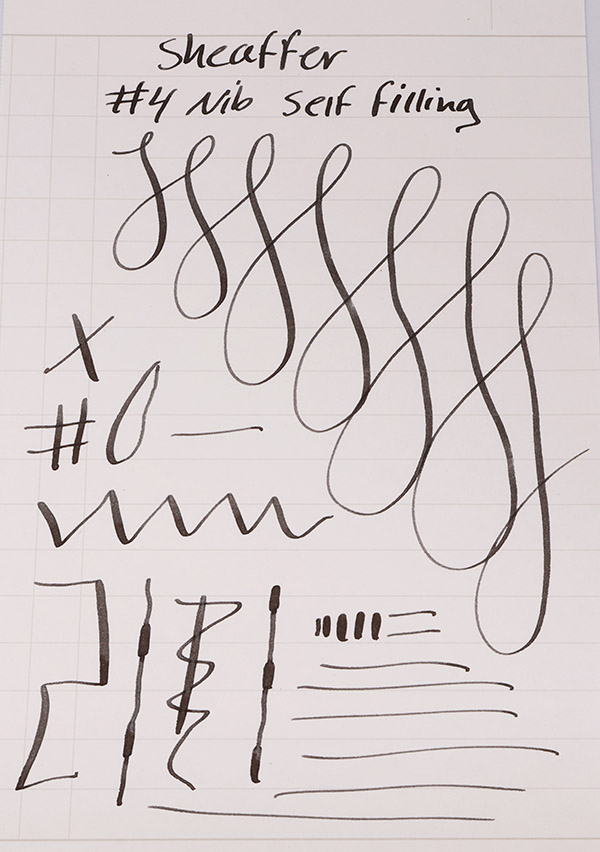 Sheaffer
#4 Nib Self Filling
X
# 0 —